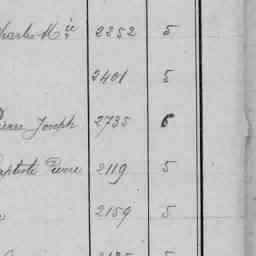 Charles Mie 2252 5
2401 5
Pierre Joseph 2735 6
Baptiste Pierre 2119 5
2159 5